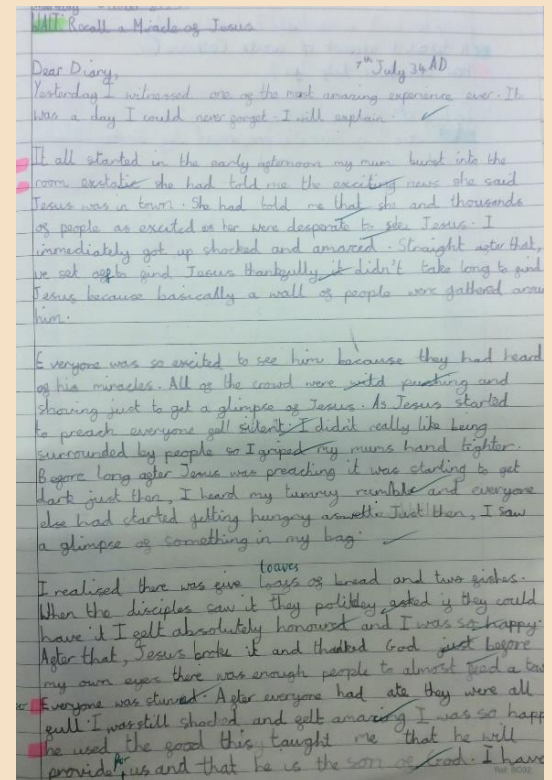 WALT Recall a Miracle of Jesus
7th July 34 AD
Dear Diary,
Yesterday I witnessed one of the most amazing experience ever. It
was a day I could never forget. I will explain.
It all started in the early afternoon my mum burst into the
room exstatic she had told me the exciting news she said
Jesus was in town. She had told me that she and thousands
of people as excited as her were desperate to see Jesus. I
immediately got up shocked and amazed. Straight after that,
we set off to find Jesus thankfully it didn't take long to find
Jesus because basically a wall of people were gathered arou
him.
Everyone was so excited to see him because they had heard
of his miracles. All of the crowd were wild pushing and
shoving just to get a glimpse of Jesus. As Jesus started
to preach everyone fell silent. I didn't really like being
surrounded by people so I griped my mums hand tighter.
Before long after Jesus was preaching it was starting to get
dark just then, I heard my tummy rumble and everyone
else had started getting hungry aswell. Just then, I saw
a glimpse of something in my bag.
loaves
I realised there was five loafs of bread and two fishes.
When the disciples saw it they politley asked if they could
have it I felt absolutely honoured and I was so happy.
After that, Jesus broke it and thanked God just before
my own eyes there was enough people to almost feed a tow
Everyone was stunned. After everyone had ate they were all
full. I was still shocked and felt amazing I was so happ
he used the food this taught me that he will
provide for us and that he is the son of God. I have